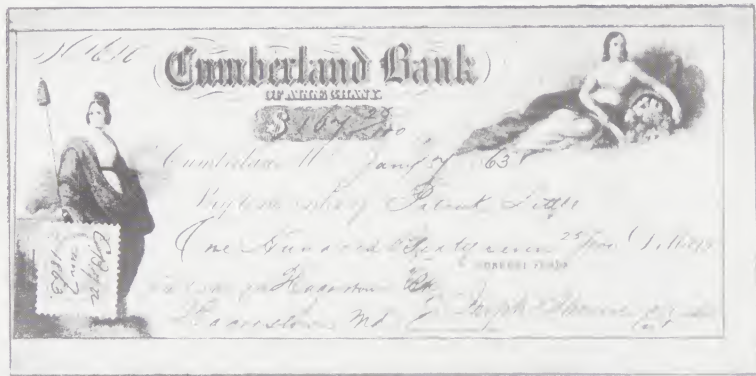 No 1616
Cumberland Bank
OF ALLEGHANY.
$ 167 25/100
Cumberland Md Jany 7 63
Pay to the order of Patrick
One Hundred Sixty seven 25/100 Dollars
CURRENT FUNDS
Hagerstown Bk
Hagerstown Md Joseph
Jany 7
1863